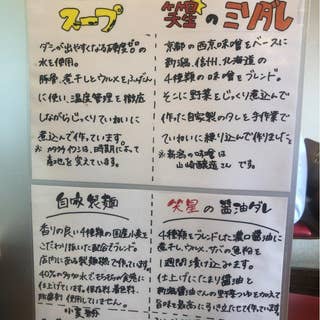 スープ
ダシが出やすくなる硬度ゼロの
水を使用。
豚骨、煮干しとウルメをふんだん
に使い、温度管理を徹底
しながらじっくりていねいに
煮込んで作っています。
時期によって
産地を変えています。
笑星のミソダレ
京都の西京味噌をベースに
新潟、信州、北海道の
4種類の味噌をブレンド。
そこに野菜をじっくり煮込んで
作った自家製のタレを手作業で
ていねいに練り込んで作りました
※新潟の味噌は
山崎醸造さんです。
自家製麺
香りの良い4種類の国産小麦を
こだわり抜いた配合でブレンド。
店内にある製麺機で作っています。
使用していません。
笑星の醤油ダレ
4種類をブレンドした濃口醤油に
煮干し、ウルメ、サバの魚粉を
1週間漬け込みます。
仕上げににまり醤油と
旨味を最高に引き立たせて作っています